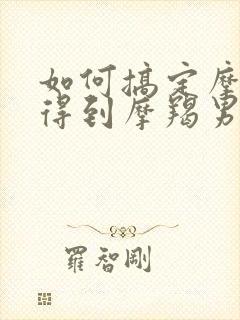 如何搞定摩
得到摩羯男
羅智剛